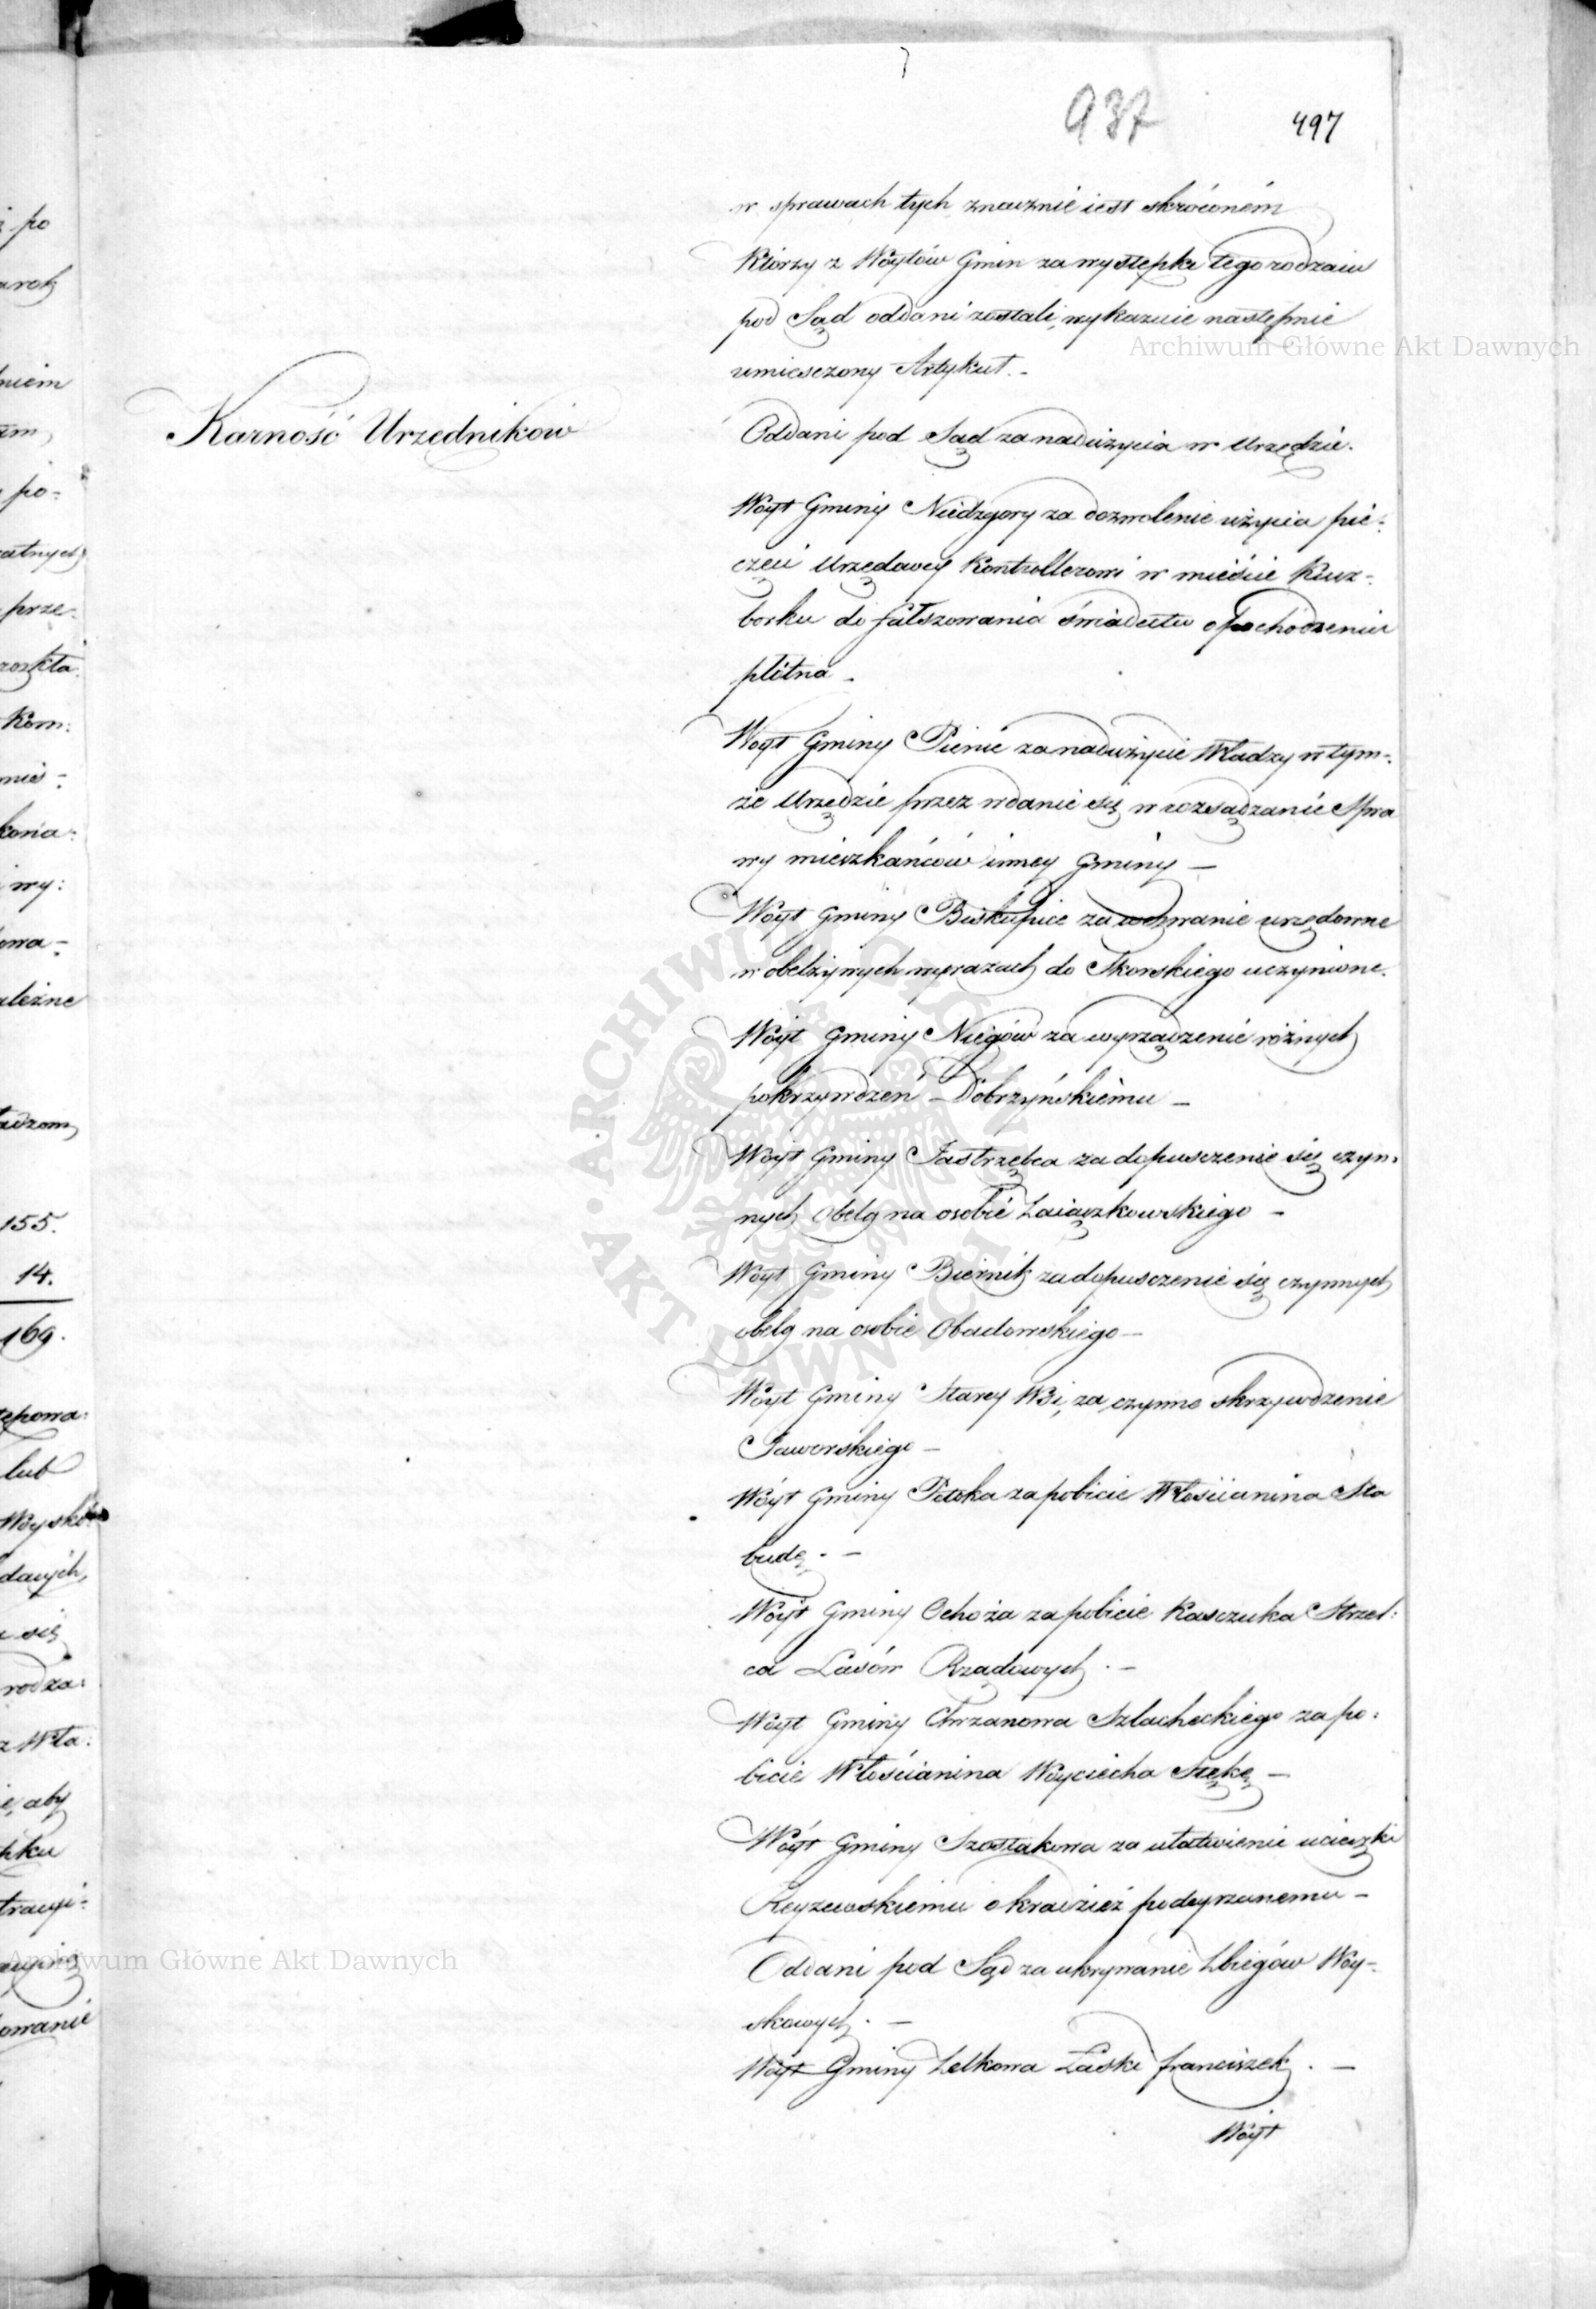 937
497
w sprawach tych znacznie iest skrócónem
Którzy z Wóytów Gmin za występki tego rodzaiu
pod Sąd oddani zostali, wykazuie następnie
umiesczony Artykuł. -
Karność Urzędników
Oddani pod Sąd za nadużycia w Urzędzie.
Wóyt Gminy Niedzgory za dozwolenie użycia pie-
częci Urzędowey Kontrollerowi w mieście Kucz-
borku do fałszowania świadectw o pochodzeniu
płótna -
Wóyt Gminy Pienie za nadużycie Władzy w tym-
że Urzędzie przez wdanie się w rozsądzanie Spra
wy mieszkańców inney Gminy -
Wóyt Gminy Biskupice za wezwanie urzędowne
w obelżywych wyrazach do Skorskiego uczynione.
Wóyt Gminy Niegów za wyrządzenie różnych
pokrzywdzeń Dobrzyńskiemu -
Wóyt Gminy Jastrzębca za dopuszczenie się czyn-
nych obelg na osobie Zaiączkowskiego -
Wóyt Gminy Biernik za dopuszczenie się czynnych
obelg na osobie Obudowskiego -
Wóyt Gminy Starey Wsi, za czynne skrzywdzenie
Jaworskiego -
Wóyt Gminy Potoka za pobicie Włościanina Sła
budę. -
Wóyt Gminy Ochoża za pobicie Kasczuka Strzel:
ca Lasów Rządowych. -
Wóyt Gminy Chrzanowa Szlacheckiego za po:
bicie Włościanina Woyciecha -
Wóyt Gminy Szostakowa za ułatwienie ucieczki
Reyzewskiemu o kradzież podeyrzanemu -
Oddani pod Sąd za ukrywanie Zbiegów Woy-
skowych. -
Wóyt Gminy Zelkowa Łaski Franciszek. -
Wóyt
i po
niem
po=
prze-
Kom:
wy:
155.
14.
169.
lub
się
rodza:
z Wła:
aby
Archiwum Główne Akt Dawnych
Archiwum Główne Akt Dawnych